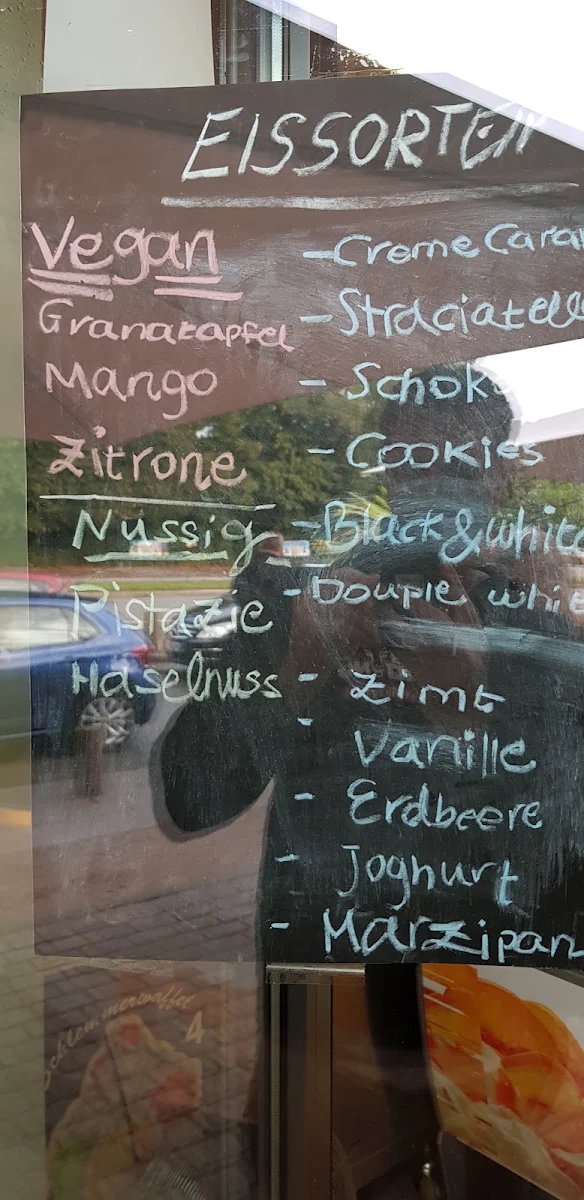 EISSORTEN
Vegan
Granatapfel
Mango
Zitrone
Nussig
Pistazie
Haselnuss
- Creme Cara
- Straciatell
- Schok
- Cookies
- Black & white
- Douple whi
- Zimt
- Vanille
- Erdbeere
- Joghurt
- Marzipan
Schlemmerwaffel
4